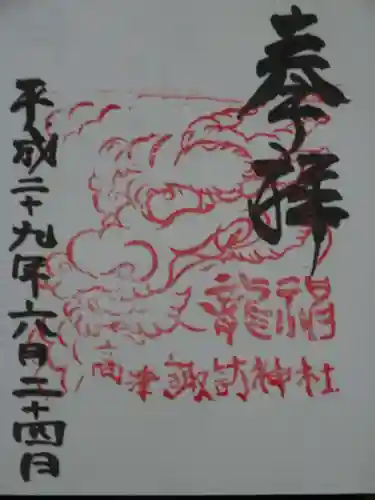 奉拝
福龍
高津諏訪神社
平成二十九年六月二十四日